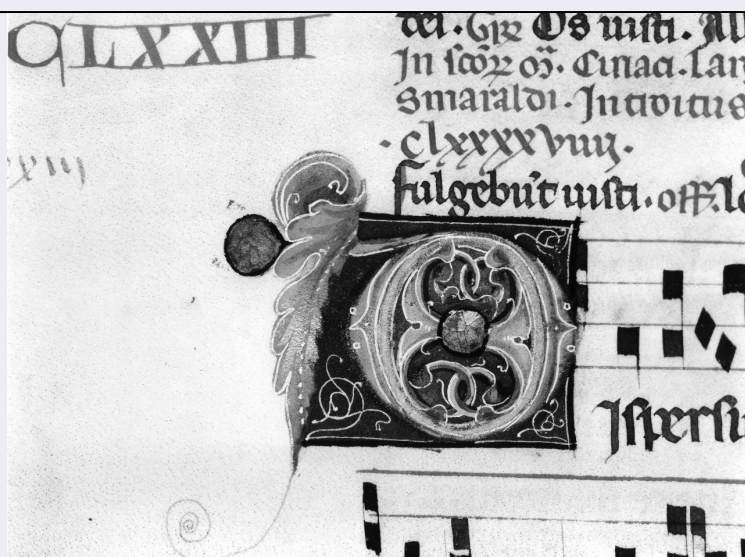 CLXXIII
dei. Gre Os iusti. All
In scorz oz. Ciriaci. Lar
Smaraldi. Introitus
.clxxxxviiij.
xxiij
fulgebūt iusti. off. le
D
Ispersi